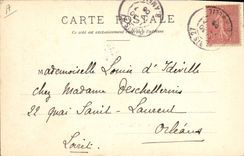 CARTE POSTALE
Ce côté est exclusivement réservé à l'adresse
Mademoiselle Louise d'Idéville
chez Madame Deschellerins
22 Quai Saint-Laurent
Orléans
Loiret.